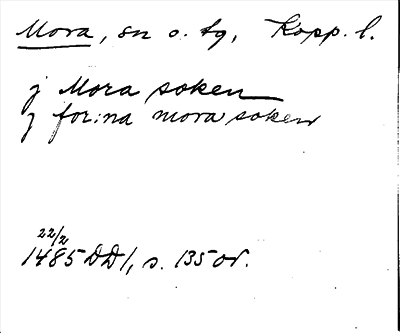 Mora, sn o. tg, Kopp. l.
j Mora soken
j for:na mora soken
22/2
1485 DD1, s. 135 or.